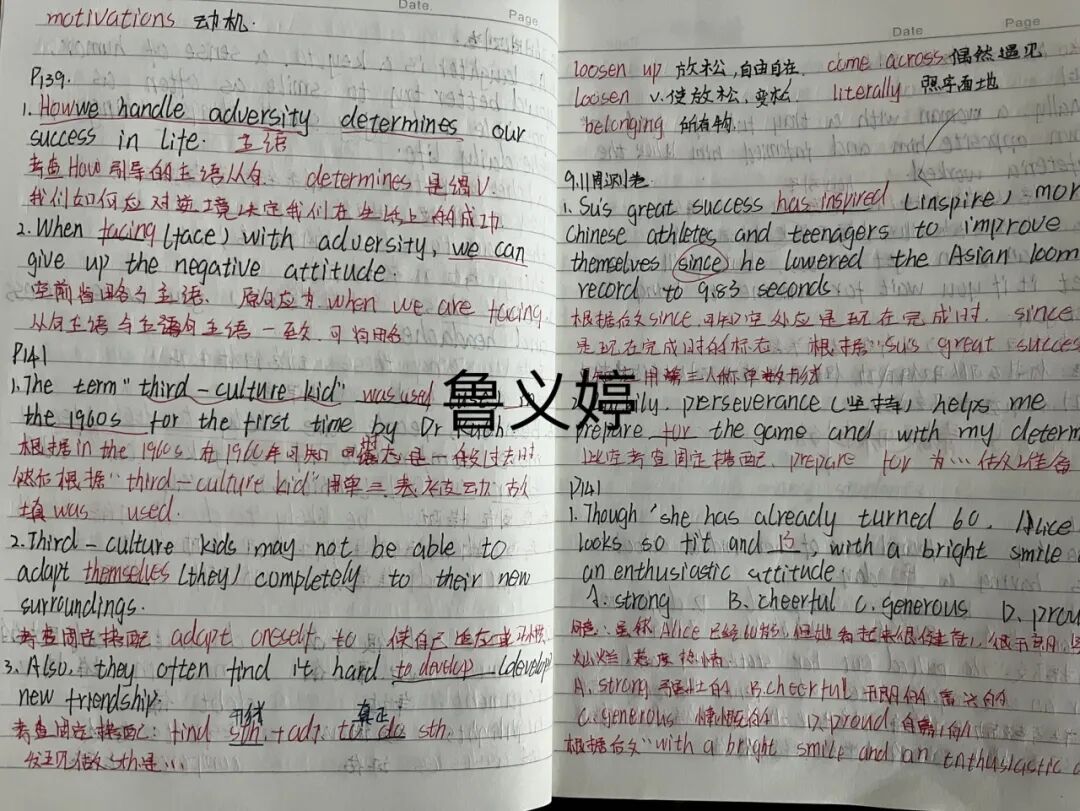 Date.
Page
motivations 动机.
P139.
1. How we handle adversity determines our
success in life. 主语
考查How引导的主语从句 determines 是谓V
我们如何应对逆境决定我们在生活上的成功.
2. When facing (face) with adversity, we can
give up the negative attitude.
空前省略了主语. 原句应为 when we are facing.
从句主语与主语句主语一致, 可省略
P141
1. The term "third-culture kid" was used
the 1960s for the first time by Dr
根据in the 1960s 在1960年可知 时态是一般过去时,
然后根据"third-culture kid"用单三 表被动 故
填was used.
2. Third-culture kids may not be able to
adapt themselves (they) completely to their new
surroundings.
考查固定搭配 adapt oneself to 使自己适应或习惯
3. Also, they often find it hard to develop (develop)
new friendship.
考查固定搭配: find sth + adj. to do sth.
真正
发现做sth是...
Date
Page
loosen up 放松,自由自在. come across 偶然遇见
loosen v.使放松,变松. literally 照字面地
belonging 所有物.
9.11周测卷
1. Su's great success has inspired (inspire) mor
Chinese athletes and teenagers to improve
themselves since he lowered the Asian 100m
record to 9.83 seconds.
根据后文since,可知空处应是现在完成时. since
是现在完成时的标志. 根据"Su's great succes
用第三人称单数形式
perseverance (坚持) helps me
prepare for the game and with my determ
此空考查固定搭配. prepare for 为...做准备
P141
1. Though she has already turned 60, Alice
looks so fit and is , with a bright smile
an enthusiastic attitude.
A. strong B. cheerful C. generous D. prou
虽然Alice已经60岁,但她看起来很健康,
灿烂,态度热情.
A. strong 强壮的 B. cheerful 开朗的 高兴的
C. generous 慷慨的 D. proud 自豪的
根据后文"with a bright smile and an enthusiastic a
鲁义婷